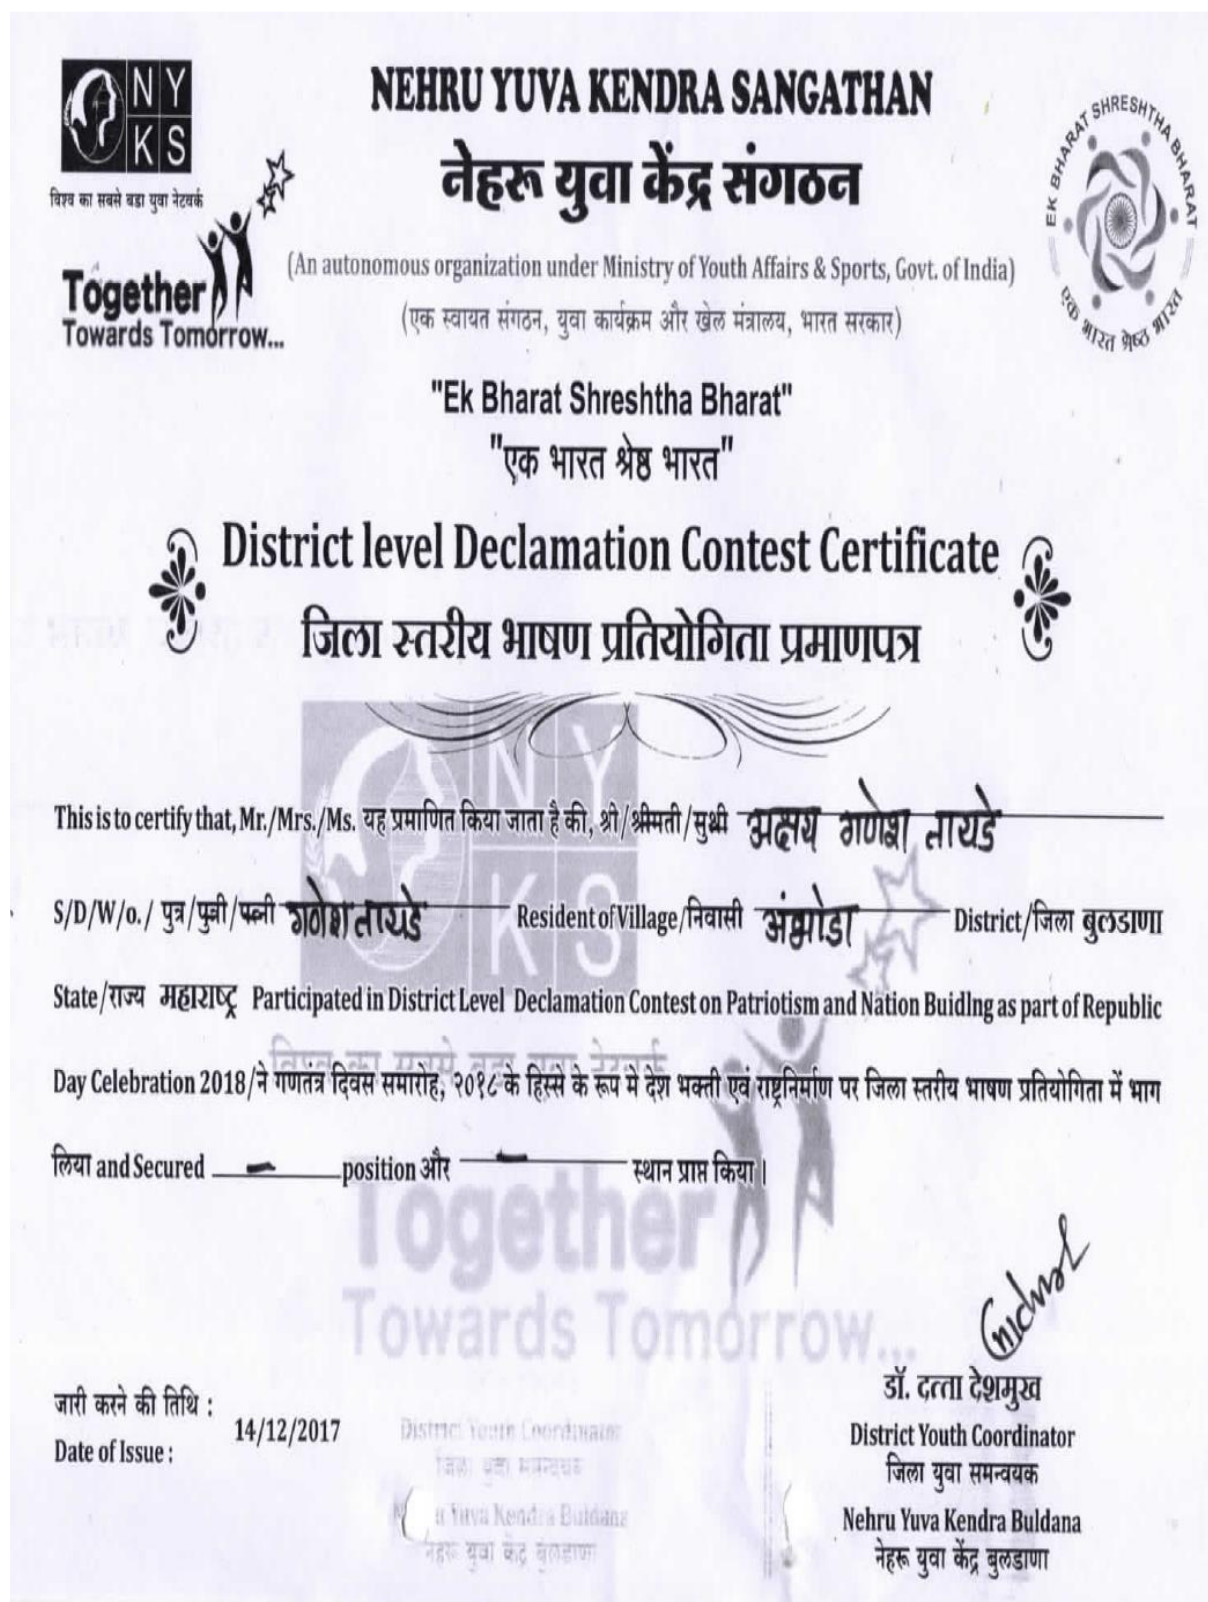 NY
KS
विश्व का सबसे बडा युवा नेटवर्क
Together
Towards Tomorrow...
NEHRU YUVA KENDRA SANGATHAN
नेहरू युवा केंद्र संगठन
(An autonomous organization under Ministry of Youth Affairs & Sports, Govt. of India)
(एक स्वायत संगठन, युवा कार्यक्रम और खेल मंत्रालय, भारत सरकार)
EK BHARAT SHRESHTHA BHARAT
एक भारत श्रेष्ठ भारत
"Ek Bharat Shreshtha Bharat"
"एक भारत श्रेष्ठ भारत"
District level Declamation Contest Certificate
जिला स्तरीय भाषण प्रतियोगिता प्रमाणपत्र
This is to certify that, Mr./Mrs./Ms. यह प्रमाणित किया जाता है की, श्री/श्रीमती/सुश्री अक्षय गणेश तायडे
S/D/W/o./ पुत्र/पुत्री/पत्नी गणेश तायडे Resident of Village/निवासी अंझोडा District/जिला बुलडाणा
State/राज्य महाराष्ट्र Participated in District Level Declamation Contest on Patriotism and Nation Buidlng as part of Republic
Day Celebration 2018/ने गणतंत्र दिवस समारोह, २०१८ के हिस्से के रूप में देश भक्ती एवं राष्ट्रनिर्माण पर जिला स्तरीय भाषण प्रतियोगिता में भाग
लिया and Secured - position और - स्थान प्राप्त किया |
NY
KS
विश्व का सबसे बडा युवा नेटवर्क
Together
Towards Tomorrow...
डॉ. दत्ता देशमुख
District Youth Coordinator
जिला युवा समन्वयक
Nehru Yuva Kendra Buldana
नेहरू युवा केंद्र बुलडाणा
जारी करने की तिथि :
Date of Issue : 14/12/2017
District Youth Coordinator
जिला युवा समन्वयक
Yuva Kendra Buldana
नेहरू युवा केंद्र बुलडाणा